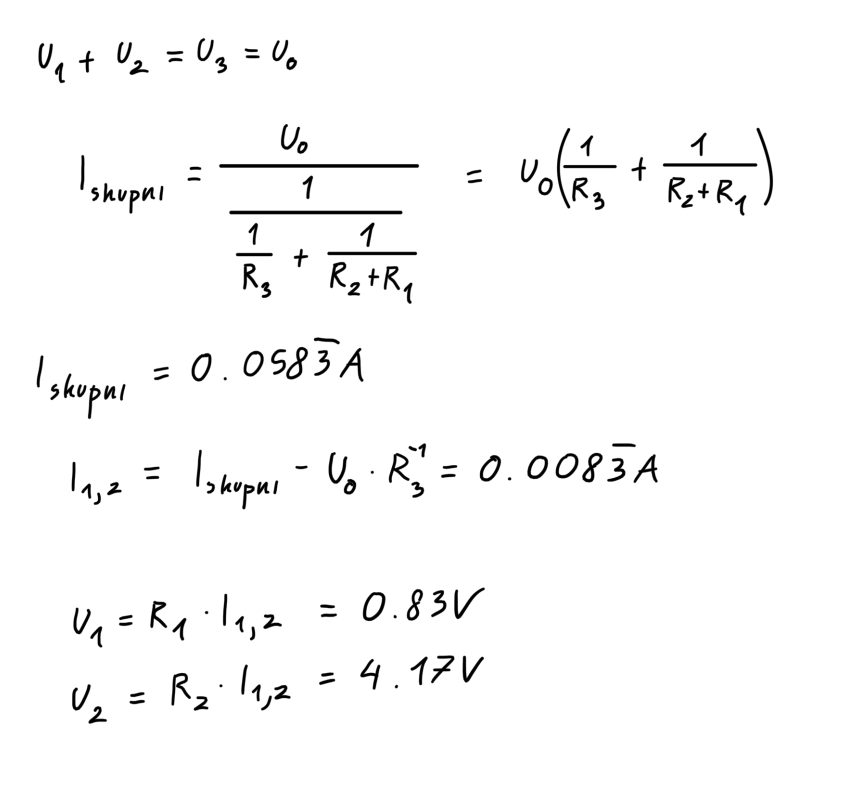 U₁ + U₂ = U₃ = U₀
I_skupni = U₀ / (1 / (1/R₃ + 1/(R₂+R₁))) = U₀(1/R₃ + 1/(R₂+R₁))
I_skupni = 0.0583̅ A
I₁,₂ = I_skupni - U₀ · R₃⁻¹ = 0.0083̅ A
U₁ = R₁ · I₁,₂ = 0.83V
U₂ = R₂ · I₁,₂ = 4.17V